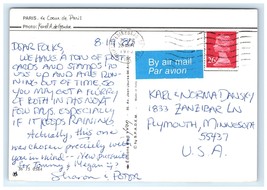 PARIS. Le Coeur de Paris
8.19
DEAR FOLKS,
WE HAVE A TON OF POST
CARDS AND STAMPS TO
USE UP AND ARE RUN-
NING OUT OF TIME SO
YOU MAY GET A FLURRY
OF BOTH IN THE NEXT
FEW DAYS, ESPECIALLY
IF IT KEEPS RAINING.
Actually, this one
was chosen specifically with
you in mind - New pursuits
for Tommy & Megan
Sharon & PETER
By air mail
Par avion
26
KARL & NORMA DANSKY
1833 ZANZIBAR LN
PLYMOUTH, MINNESOTA
55437
U.S.A.